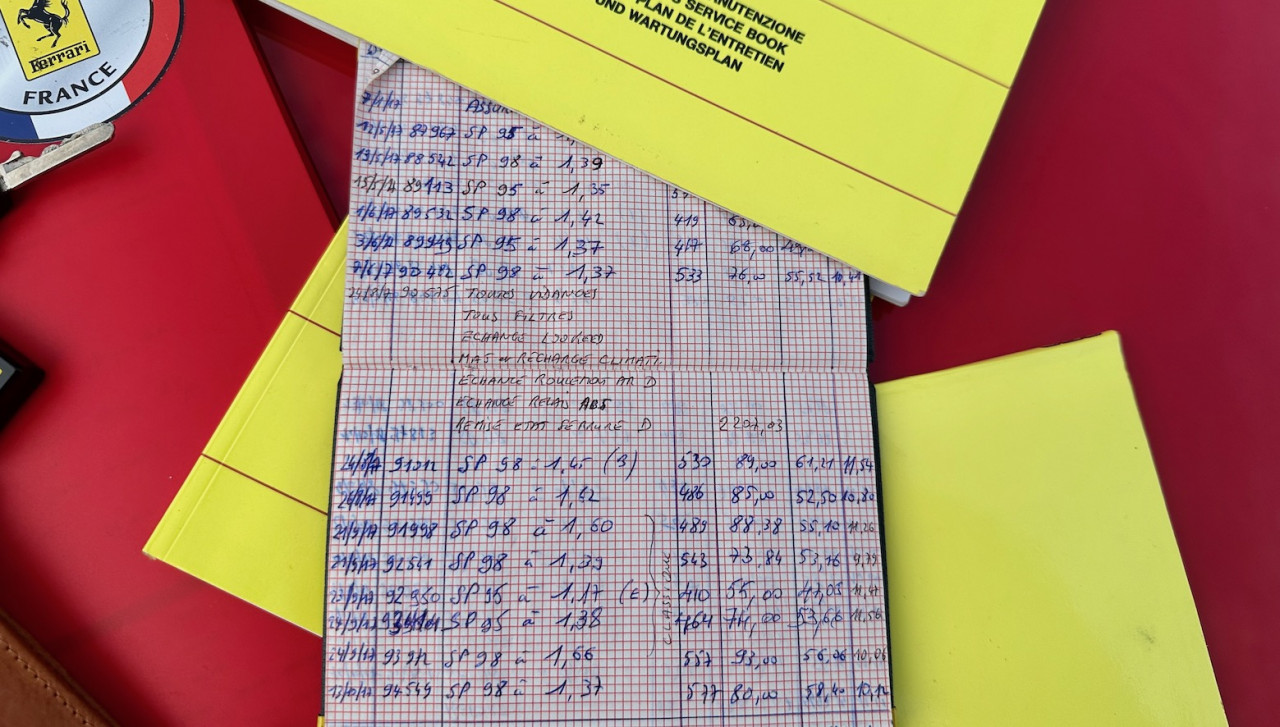 Ferrari
FRANCE
MANUTENZIONE
SERVICE BOOK
PLAN DE L'ENTRETIEN
UND WARTUNGSPLAN
7/1/17
12/5/17 87967 SP 95 à
13/5/17 88542 SP 98 à 1,39
15/5/17 89113 SP 95 à 1,35
1/6/17 89532 SP 98 à 1,42 419
3/6/17 89949 SP 95 à 1,37 417 68,00
7/6/17 90482 SP 98 à 1,37 533 76,00 55,52
90575 TOUTES VIDANGES
TOUS FILTRES
ECHANGE
RECHARGE CLIMATI
ECHANGE AR D
ECHANGE RELAIS ABS
REMISE ETAT SERRURE D 2207,03
91012 SP 98 à 1,45 (3) 530 89,00 61,21 11,54
91499 SP 98 à 1,62 486 85,00 52,50 10,80
21/9/17 91998 SP 98 à 1,60 489 88,38 55,10 11,26
21/9/17 92541 SP 98 à 1,39 543 73,84 53,16 9,79
23/9/17 92950 SP 95 à 1,17 (E) 410 55,00 47,05 11,47
SP 95 à 1,38 464 74,00 53,66 11,56
24/9/17 SP 98 à 1,66 557 93,00 56,06 10,06
13/10/17 94549 SP 98 à 1,37 577 80,00 58,40 10,12